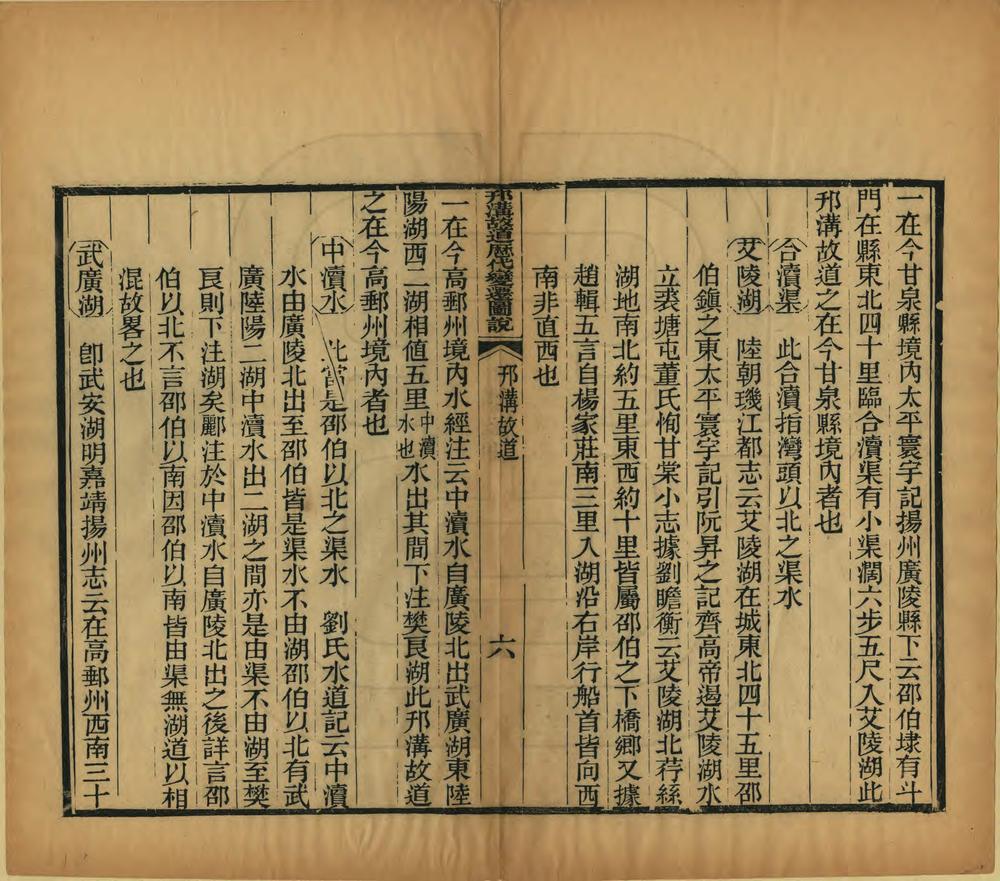 一在今甘泉縣境內太平寰宇記揚州廣陵縣下云邵伯埭有斗
門在縣東北四十里臨合瀆渠有小渠濶六步五尺入艾陵湖此
邗溝故道之在今甘泉縣境內者也
合瀆渠 此合瀆指灣頭以北之渠水
艾陵湖 陸朝璣江都志云艾陵湖在城東北四十五里邵
伯鎮之東太平寰宇記引阮昇之記齊高帝遏艾陵湖水
立裘塘屯董氏恂甘棠小志據劉瞻衡云艾陵湖北荇絲
湖地南北約五里東西約十里皆屬邵伯之下橋鄉又據
趙輯五言自楊家莊南三里入湖沿右岸行船首皆向西
南非直西也
邗溝故道歷代變遷圖說 邗溝故道 六
一在今高郵州境內水經注云中瀆水自廣陵北出武廣湖東陸
陽湖西二湖相值五里中瀆水也水出其間下注樊良湖此邗溝故道
之在今高郵州境內者也
中瀆水 此當是邵伯以北之渠水 劉氏水道記云中瀆
水由廣陵北出至邵伯皆是渠水不由湖邵伯以北有武
廣陸陽二湖中瀆水出二湖之間亦是由渠不由湖至樊
良則下注湖矣酈注於中瀆水自廣陵北出之後詳言邵
伯以北不言邵伯以南因邵伯以南皆由渠無湖道以相
混故畧之也
武廣湖 卽武安湖明嘉靖揚州志云在高郵州西南三十